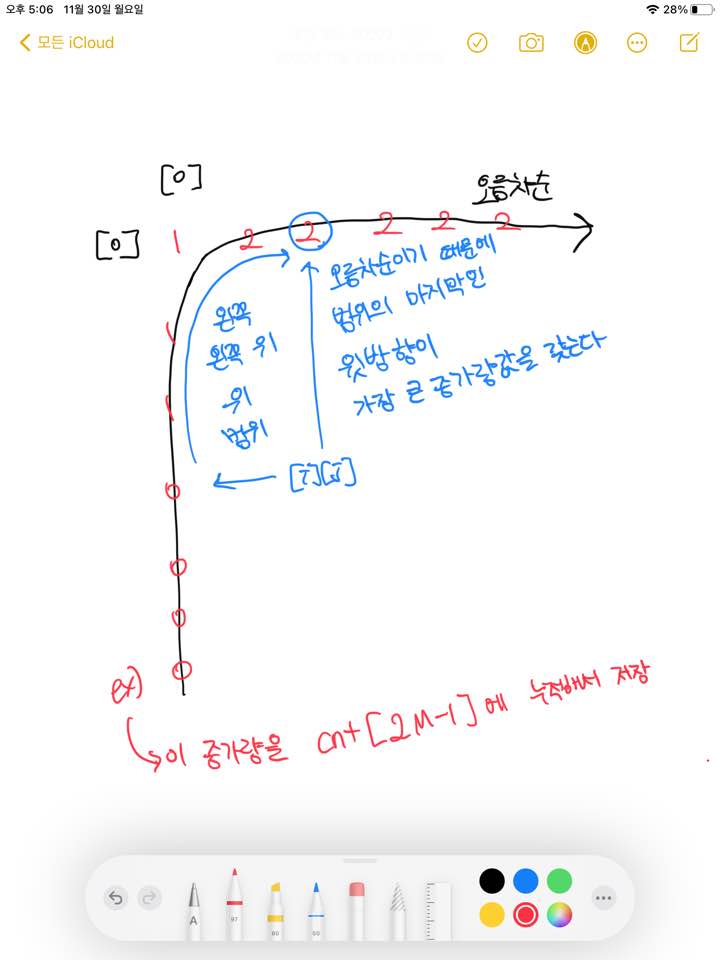 오후 5:06 11월 30일 월요일
28%
모든 iCloud
[0]
오름차순
[0] 1 2 2 2 2 2
오름차순이기 때문에
범위의 마지막인
윗방향이
가장 큰 증가량값을 갖는다
왼쪽
왼쪽 위
위
범위
1
1
[i][j]
0
0
0
0
ex)
이 증가량을 cnt[2M-1]에 누적해서 저장
A
97
80
50